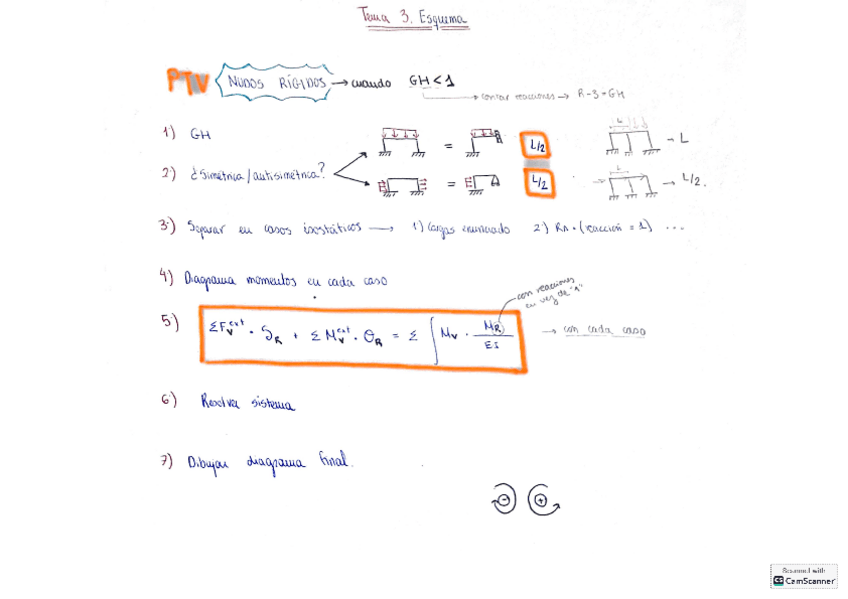 Tema 3. Esquema
PTV NUDOS RÍGIDOS → cuando GH < 1
→ contar reacciones → R-3 = GH
1) GH
= L/2 → L
2) ¿Simétrica/antisimétrica?
= L/2 → L/2.
3) Separar en casos isostáticos → 1) Cargas enunciado 2) RA · (reacción = 1) ...
4) Diagrama momentos en cada caso
con reacciones en vez de "1"
5) ΣFv^ext · δR + ΣMv^ext · θR = Σ ∫ Mv · MR/EI → con cada caso
6) Resolver sistema
7) Dibujar diagrama final.
- +
Scanned with
CS CamScanner